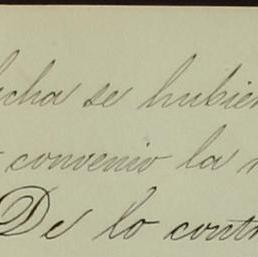 echa se hubier
convenio la
De lo contr